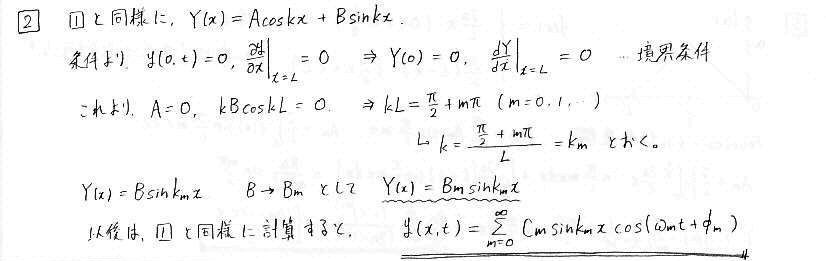 2 1と同様に, Y(x) = Acoskx + Bsinkx.
条件より y(0,t)=0, ∂y/∂x|x=L = 0 ⇒ Y(0)=0, dY/dx|x=L = 0 …境界条件
これより, A=0, kBcoskL = 0. ⇒ kL = π/2 + mπ (m=0,1,…)
↳ k = (π/2 + mπ)/L = km とおく。
Y(x) = Bsinkmx B→Bm として Y(x) = Bmsinkmx
以後は, 1と同様に計算すると, y(x,t) = ∞Σm=0 Cmsinkmx cos(ωmt+ϕm)